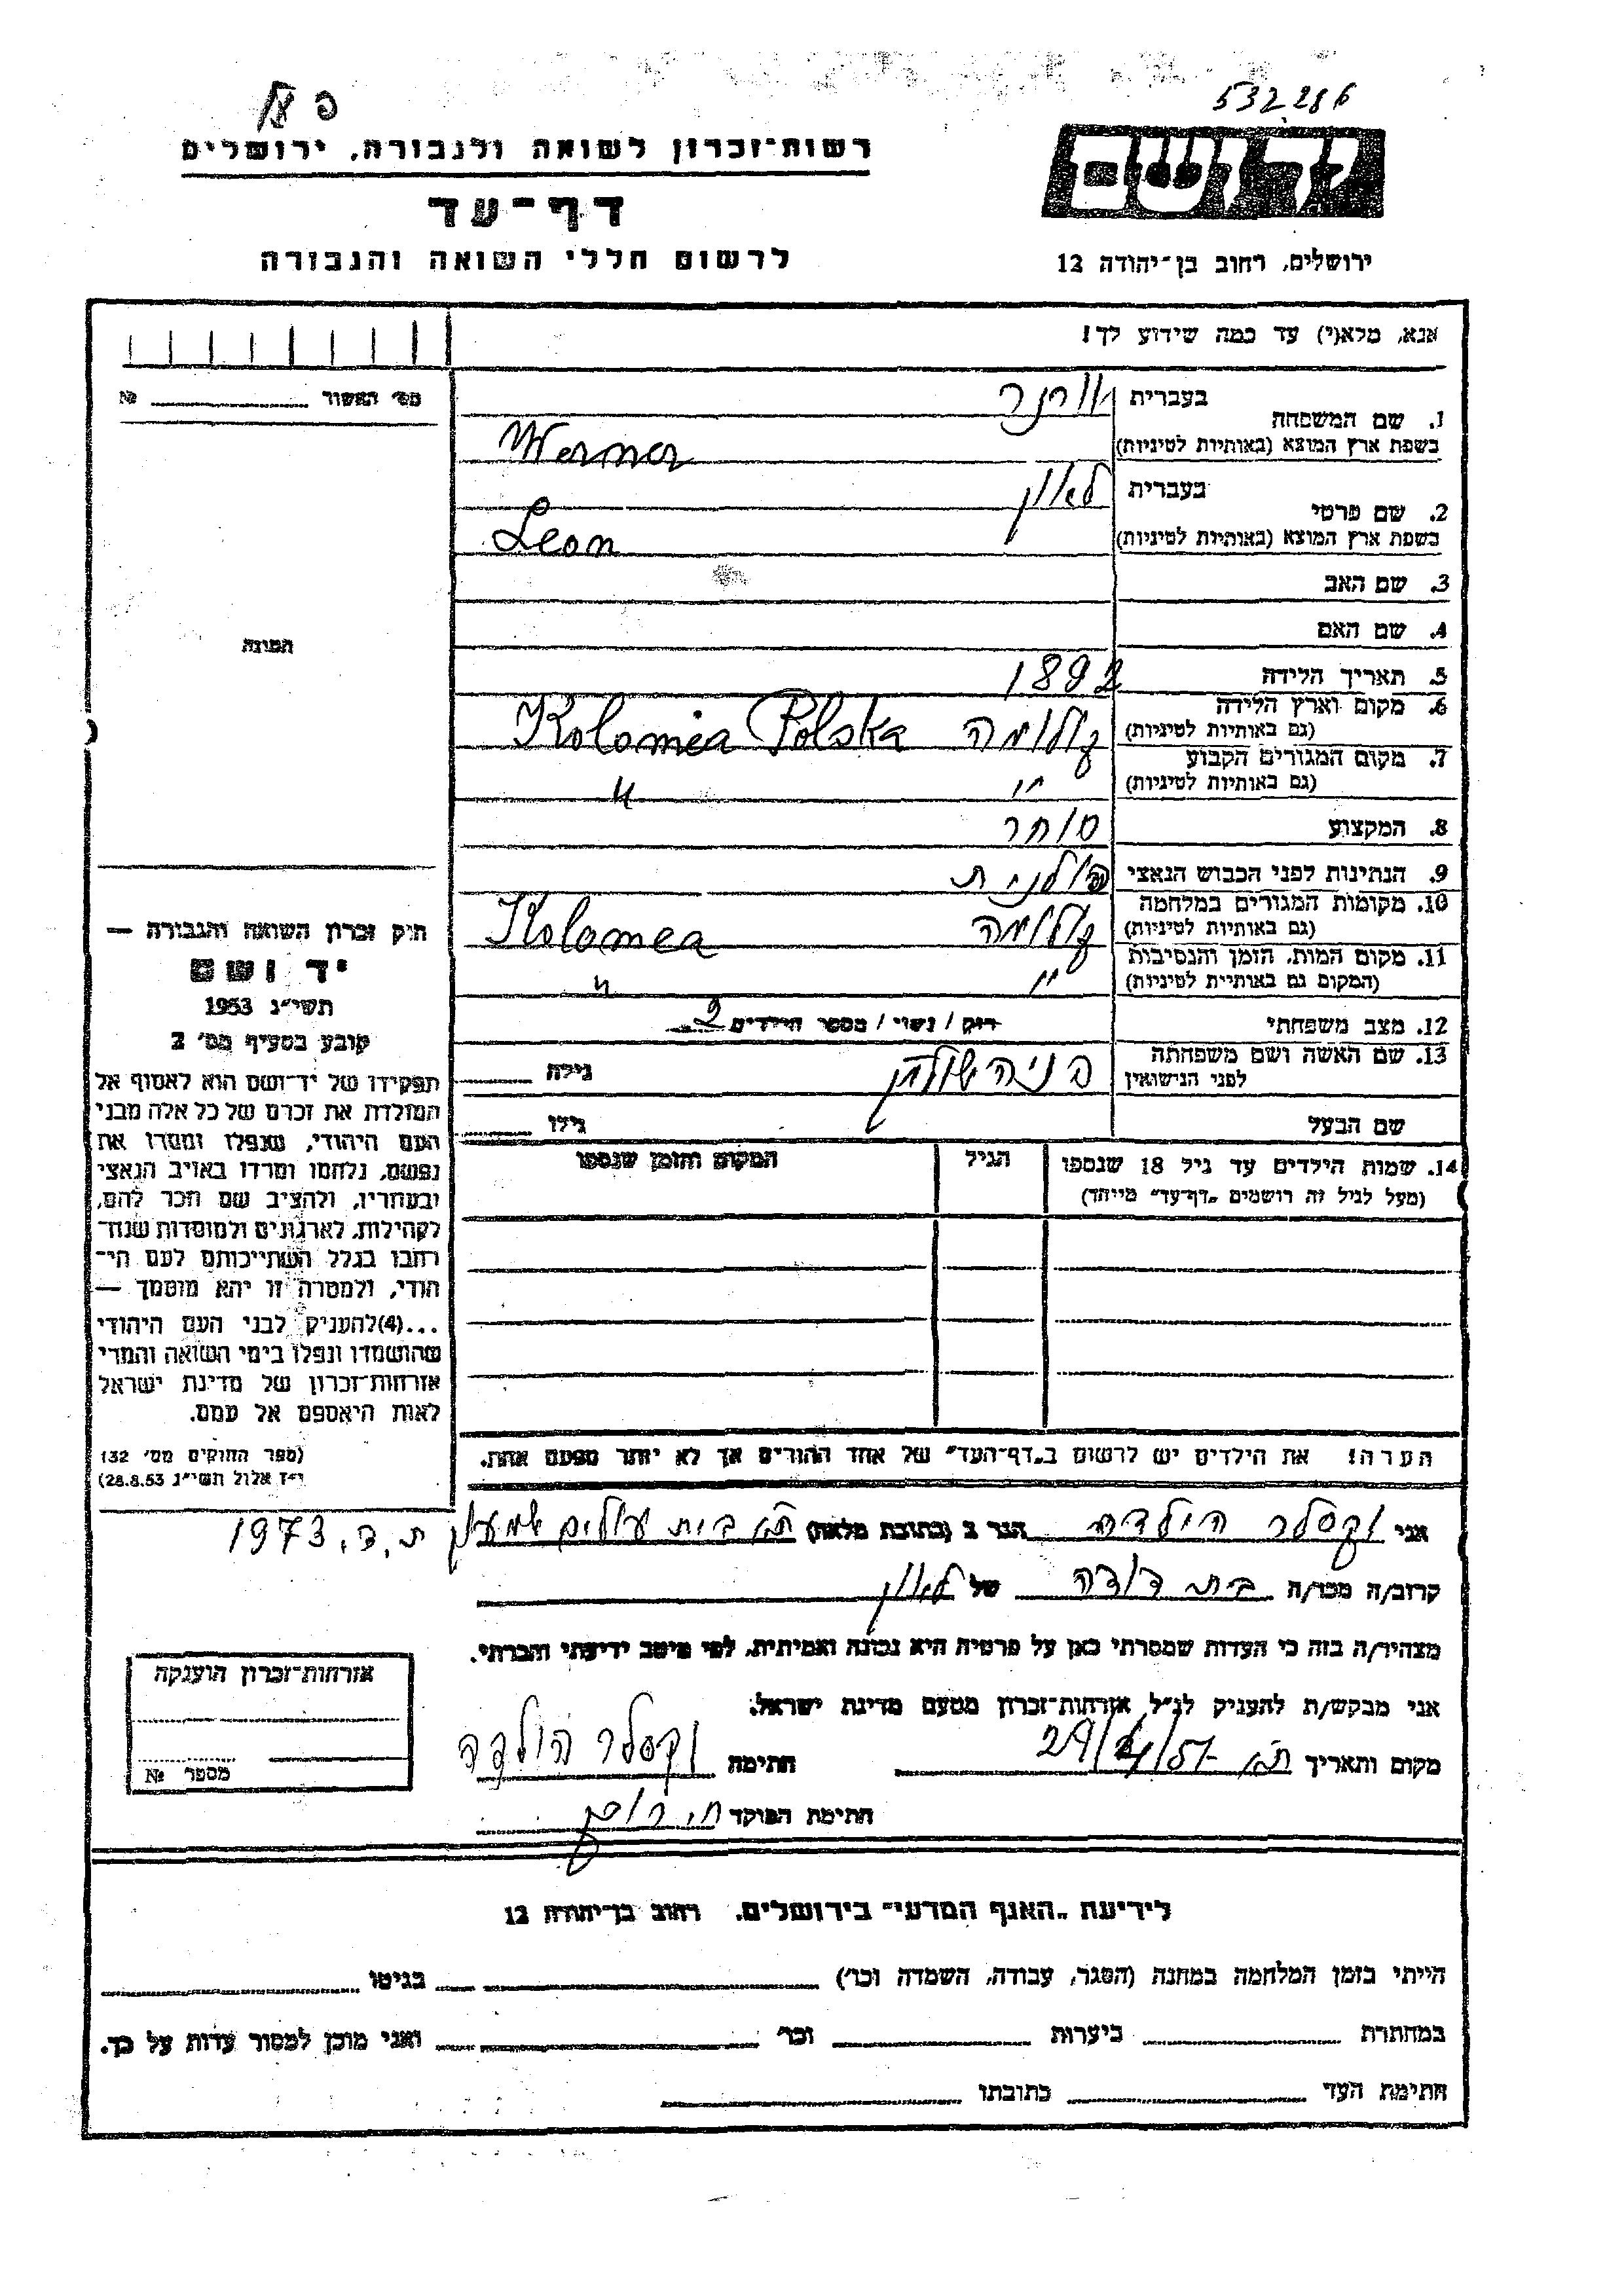 532286
רשות-זכרון לשואה ולגבורה, ירושלים
דף-עד
לרשום חללי השואה והגבורה
ירושלים, רחוב בן-יהודה 12
אנא, מלא(י) עד כמה שידוע לך!
מס' האשור № 
1. שם המשפחה בעברית וורנר
בשפת ארץ המוצא (באותיות לטיניות) Werner
2. שם פרטי בעברית לאון
בשפת ארץ המוצא (באותיות לטיניות) Leon
3. שם האב
4. שם האם
התמונה
5. תאריך הלידה 1892
6. מקום וארץ הלידה (גם באותיות לטיניות) קולומיה Kolomea Polska
7. מקום המגורים הקבוע (גם באותיות לטיניות) " "
8. המקצוע סוחר
9. הנתינות לפני הכבוש הנאצי פולנית
10. מקומות המגורים במלחמה (גם באותיות לטיניות) קולומיה Kolomea
11. מקום המות, הזמן והנסיבות (המקום גם באותיית לטיניות) " "
12. מצב משפחתי רוק / נשוי / מספר הילדים 2
13. שם האשה ושם משפחתה לפני הנישואין גילה
שם הבעל גילו
14. שמות הילדים עד גיל 18 שנספו הגיל המקום והזמן שנספו
(מעל לגיל זה רושמים "דף-עד" מייחד)
חוק זכרון השואה והגבורה —
יד ושם
תשי"ג 1953
קובע בסעיף מס' 2
תפקידו של יד-ושם הוא לאסוף אל
המולדת את זכרם של כל אלה מבני
העם היהודי, שנפלו ומסרו את
נפשם, נלחמו ומרדו באויב הנאצי
ובעוזריו, ולהציב שם וזכר להם,
לקהילות, לארגונים ולמוסדות שנח-
רחבו בגלל השתייכותם לעם הי-
הודי, ולמטרה זו יהא מוסמך —
...(4)להעניק לבני העם היהודי
שהושמדו ונפלו בימי השואה והמרי
אזרחות-זכרון של מדינת ישראל
לאות היאספם אל עמם.
(ספר החוקים מס' 132
י"ז אלול תשי"ג 28.8.53)
הערה! את הילדים יש לרשום ב"דף-העד" של אחד ההורים אך לא יותר מפעם אחת.
אני וקסלר הילדה הגר ב (כתובת מלאה) ת"א בית עולים שמעון ת.ד. 1973
קרוב/ה מכר/ה בת דודה של לאון
מצהיר/ה בזה כי העדות שמסרתי כאן על פרטיה היא נכונה ואמיתית, לפי מיטב ידיעתי והכרתי.
אני מבקש/ת להעניק לנ"ל אזרחות-זכרון מטעם מדינת ישראל.
מקום ותאריך ת"א חתימה וקסלר הילדה
חתימת הפוקד
אזרחות-זכרון הוענקה
מספר №
לידיעת "האגף המדעי" בירושלים, רחוב בן-יהודה 12
הייתי בזמן המלחמה במחנה (הסגר, עבודה, השמדה וכו') בגיטו
במחתרת ביערות וכו' ואני מוכן למסור עדות על כך.
חתימת העד כתובתו